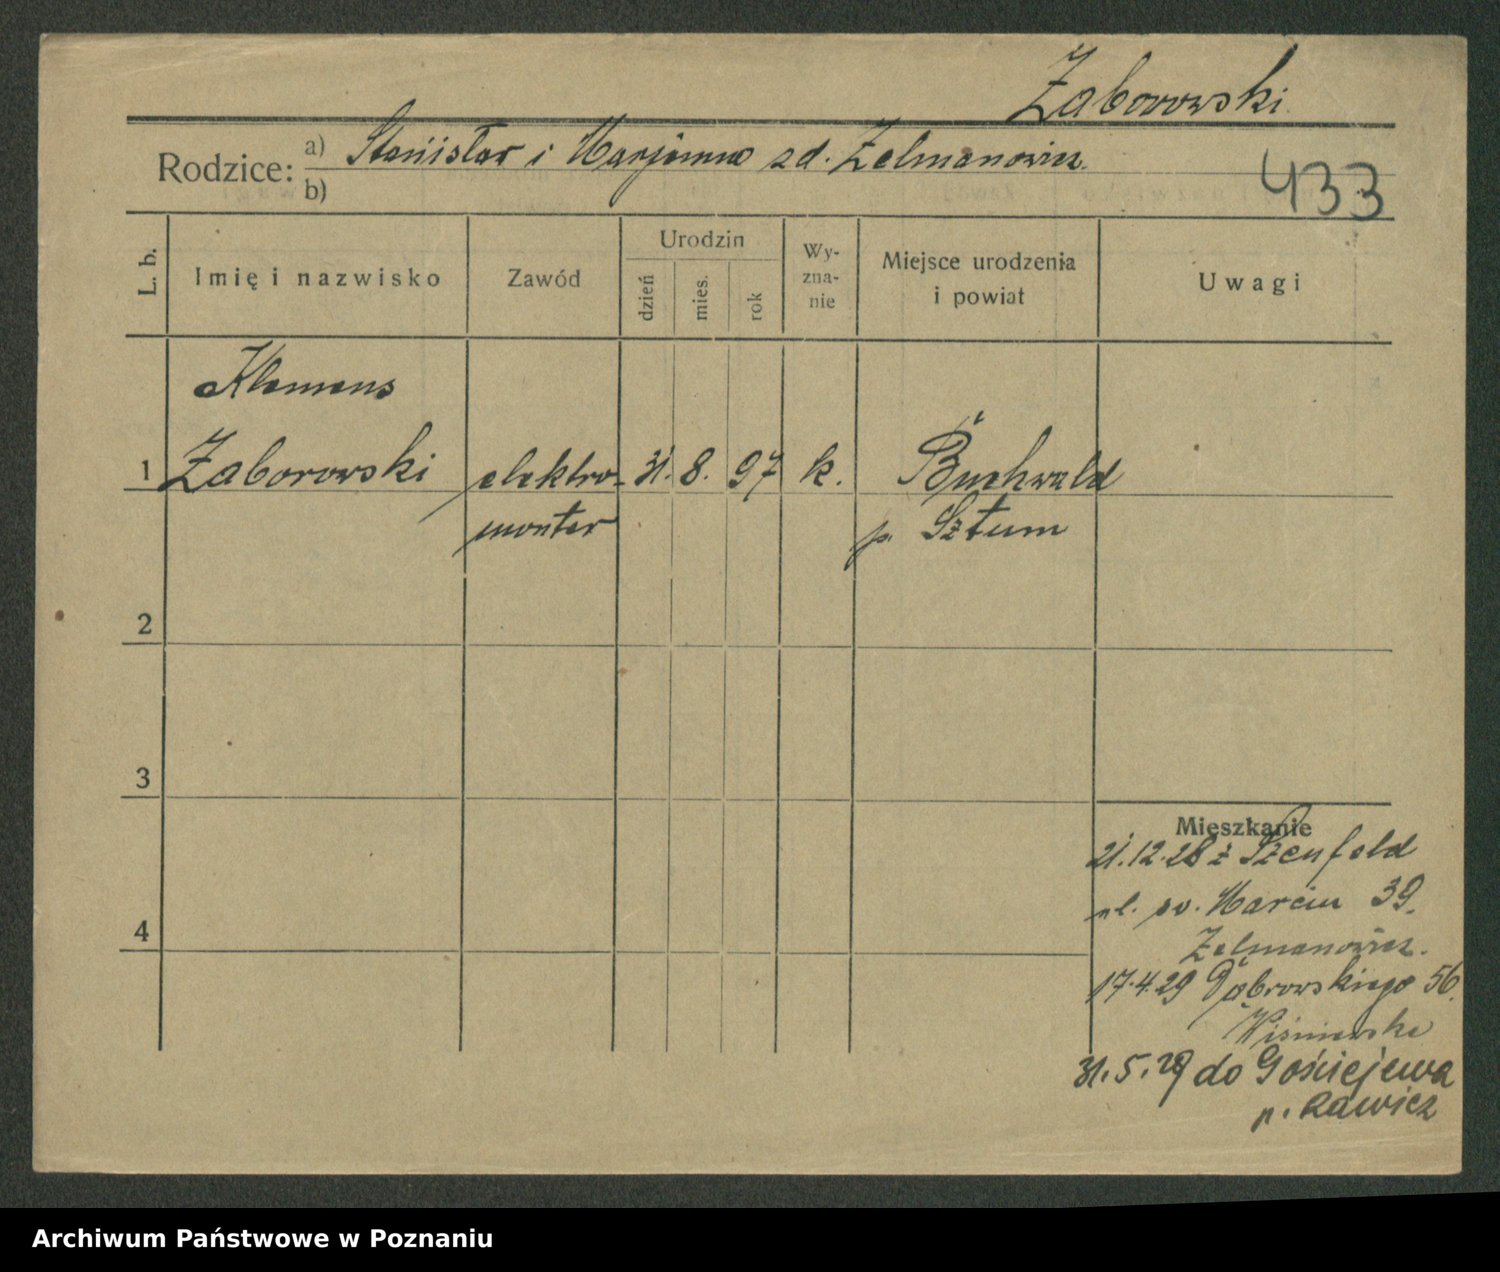 Zaborowski
Rodzice: a) Stanisław i Marjanna zd. Zelmanowicz.
b)
433
L. b.
Imię i nazwisko
Zawód
Urodzin
dzień
mies.
rok
Wy-
zna-
nie
Miejsce urodzenia
i powiat
Uwagi
Klemens
1 Zaborowski elektro- 31. 8. 97 k. Buchwald
monter p. Sztum
2
3
4
Mieszkanie
21.12.28 z Szenfeld
ul. św. Marcin 39.
Zelmanowicz.
17.4.29 Dąbrowskiego 56.
Wiśniewska
31.5.29 do Gościejewa
p. Rawicz
Archiwum Państwowe w Poznaniu